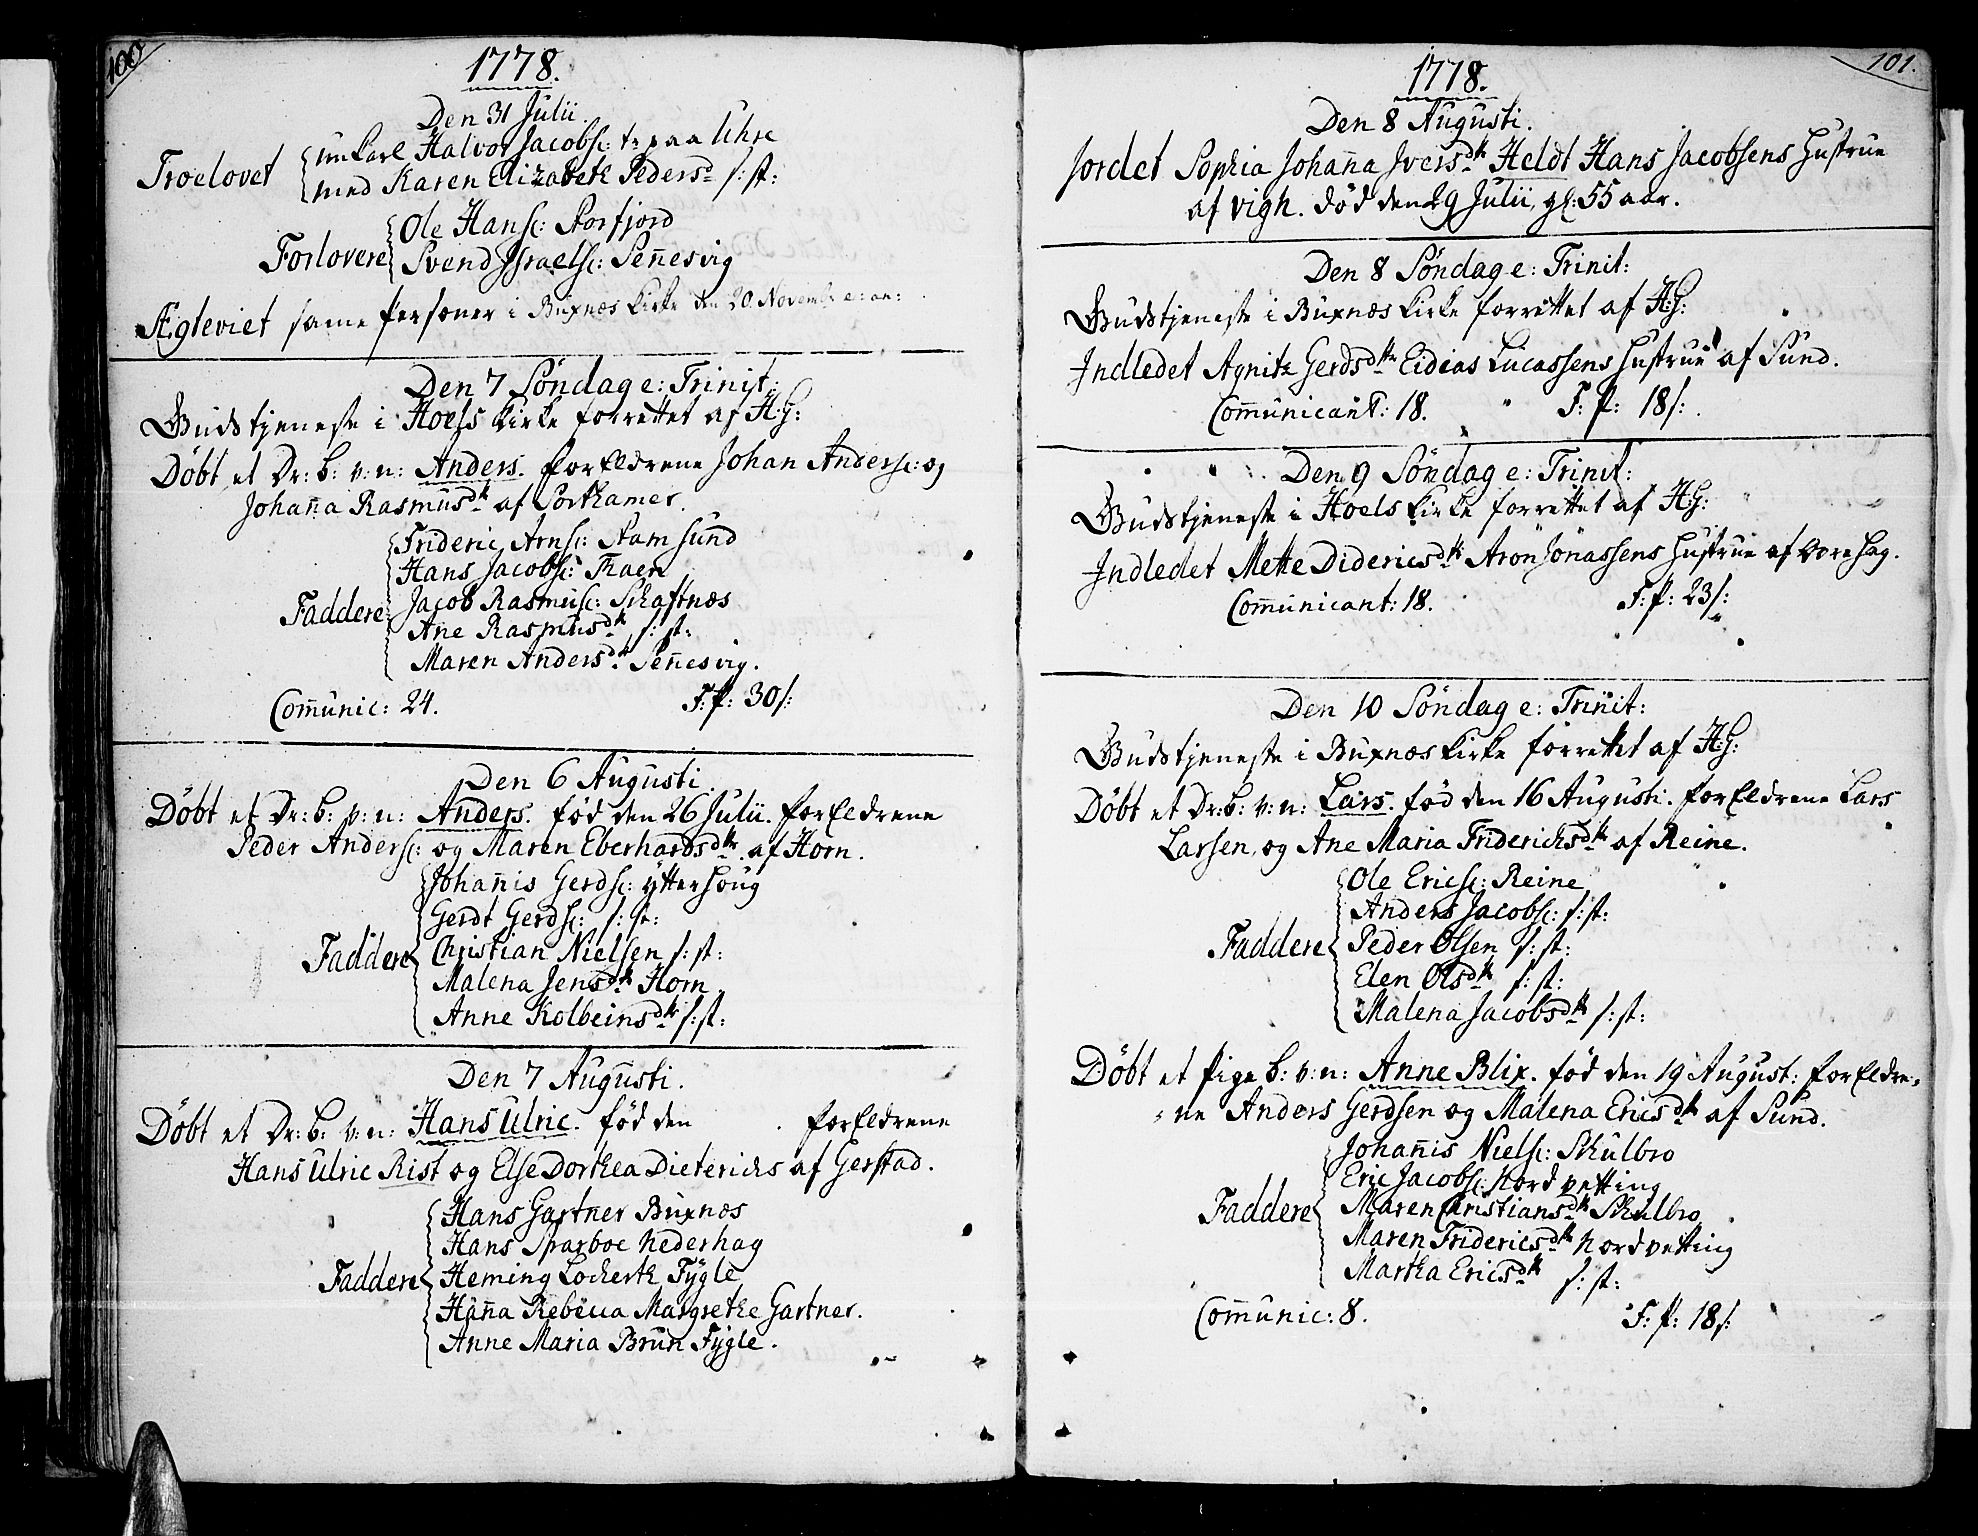 100
1778.
Den 31 Julii.
Troelovet
unkarl Halvor Jacobsc: tr paa Uhre
med Karen Elizabeth Pedersd s: st:
Forlovere
Ole Hansc: Storfjord
Svend Jsraelsc: Sennesvig
Ægteviet same Personer i Buxnæs Kirke den 20 Novembr e: an:
Den 7 Søndag e: Trinit:
Gudstjeneste i Hoels Kirke forrettet af H: G:
Döbt et Dr: b: v: n: Anders. forEldrene Johan Andersc: og
Johanna Rasmusdtr af Sortkamer.
Faddere
Frideric Arnsc: Stamsund
Hans Jacobsc: Thaen
Jacob Rasmusc: Schaftnæs
Ane Rasmusdtr s: st:
Maren Andersdtr Sennesvig.
Communic: 24. T: P: 30 s:
Den 6 Augusti.
Döbt et Dr: b: v: n: Anders. född den 26 Julii. forEldrene
Peder Andersc: og Maren Eberhardsdtr. af Horn.
Faddere
Johannis Gerdsc: ÿtterhoug
Gerdt Gerdsc: s: st:
Christian Nielsen s: st:
Malena Jensdtr Horn
Anne Kolbeinsdtr s: st:
Den 7 Augusti.
Döbt et Dr: b: v: n: Hans Ulric. föd den . forEldrene
Hans Ulric Rist og Else Dorthea Dieterichs af Gerstad.
Faddere
Hans Gartner Buxnæs
Hans Sparboe Nederhag
Heming Lockerth Fÿgle
Hanna Rebecca Margrethe Gartner.
Anne Maria Brun Fÿgle.
101.
1778.
Den 8 Augusti.
Jordet Sophia Johanna Jversdtr Heldt Hans Jacobsens Hustrue
af Vigh. död den 29 Julii, gl: 55 aar.
Den 8 Søndag e: Trinit:
Gudstjeneste i Buxnæs Kirke forrettet af H: G:
Indledet Agnitz Gerdsdtr Eidias Lucassens Hustrue af Sund.
Communicant: 18. T: P: 18 s:.
Den 9 Søndag e: Trinit:
Gudstjeneste i Hoels Kirke forrettet af H: G:
Indledet Mette Didericsdtr Aron Jonassens Hustrue af Orehag.
Communicant: 18. T: P: 23 s:
Den 10 Søndag e: Trinit:
Gudstjeneste i Buxnæs Kirke forrettet af H: G:
Döbt et Dr: b: v: n: Lars. föd den 16 Augusti. forEldrene Lars
Larsen, og Ane Maria Friderichsdtr af Reine.
Faddere
Ole Ericsc: Reine
Anders Jacobsc: s: st:
Peder Olsen s: st:
Elen Olsdtr s: st:
Malena Jacobsdtr s: st:
Döbt et Pige b: v: n: Anne Blix. föd den 19 August: forEldre-
ne Anders Gerdsen og Malena Ericsdtr af Sund.
Faddere
Johannis Nielsc: Skulbro
Eric Jacobsc: Nordpetting
Maren Christiansdtr Skulbro
Maren Fridericsdtr Nordpetting
Martha Ericsdtr s: st:
Communic: 8. T: P: 18 s: